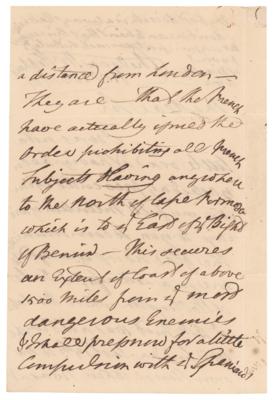 a distance from London —
They are — that the French
have actually issued the
Order prohibiting all French
Subjects Slaving anywhere
to the North of Cape Formosa
which is to ye East of ye Bight
of Benin — This secures
an Extent of Coast of above
1500 Miles from ye most
dangerous Enemies
I shall press now for a little
Compulsion with ye Spaniards